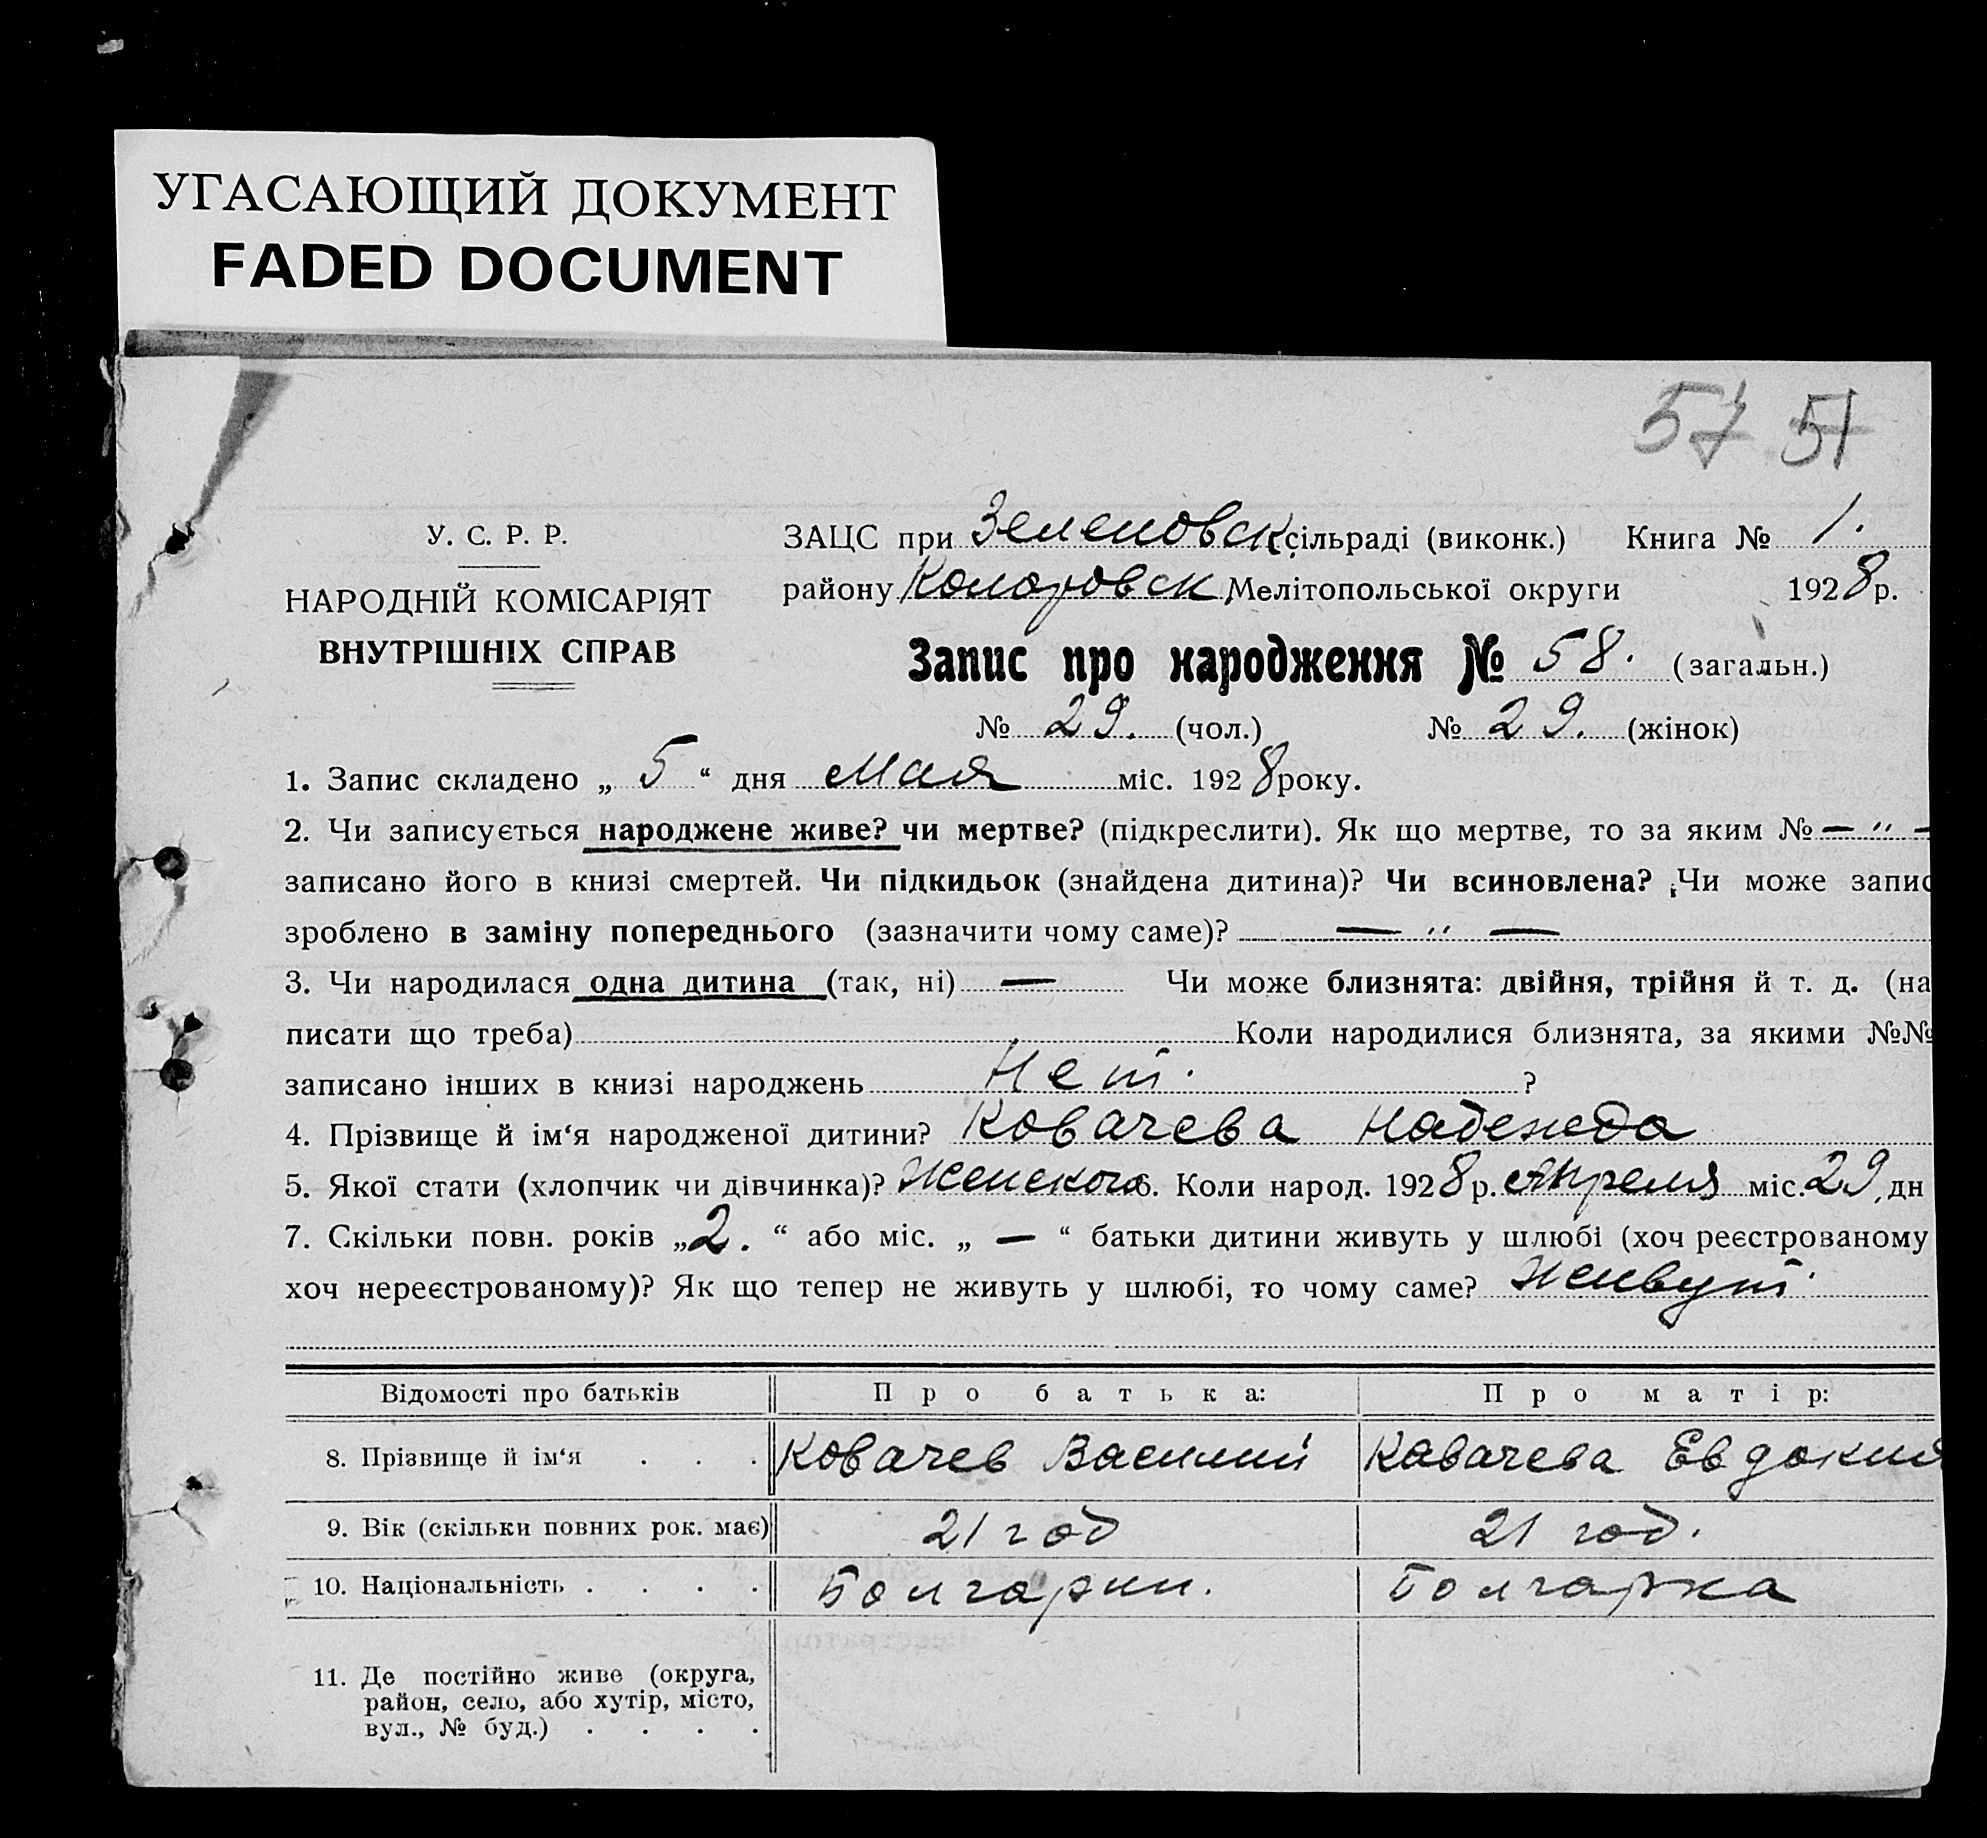 УГАСАЮЩИЙ ДОКУМЕНТ
FADED DOCUMENT
57 51
У. С. Р. Р.
НАРОДНІЙ КОМІСАРІЯТ
ВНУТРІШНІХ СПРАВ
ЗАЦС при Зеленовск сільраді (виконк.) Книга № 1.
району Коларовск Мелітопольської округи 1928 р.
Запис про народження № 58. (загальн.)
№ 29. (чол.) № 29. (жінок)
1. Запис складено „ 5 “ дня Мая міс. 1928 року.
2. Чи записується народжене живе? чи мертве? (підкреслити). Як що мертве, то за яким № — „ —
записано його в книзі смертей. Чи підкидьок (знайдена дитина)? Чи всиновлена? Чи може запис
зроблено в заміну попереднього (зазначити чому саме)? — „ —
3. Чи народилася одна дитина (так, ні) — Чи може близнята: двійня, трійня й т. д. (на
писати що треба) Коли народилися близнята, за якими №№
записано інших в книзі народжень Нет. ?
4. Прізвище й ім‘я народженої дитини? Ковачева Надежда
5. Якої стати (хлопчик чи дівчинка)? Женского 6. Коли народ. 1928 р. Апреля міс. 29 дн
7. Скільки повн. років „ 2. “ або міс. „ — “ батьки дитини живуть у шлюбі (хоч реєстрованому
хоч нереєстрованому)? Як що тепер не живуть у шлюбі, то чому саме? Живут.
Відомості про батьків Про батька: Про матір:
8. Прізвище й ім‘я . . . Ковачев Василий Кавачева Евдокия
9. Вік (скільки повних рок. має) 21 год 21 год.
10. Національність . . . . Болгарин. Болгарка
11. Де постійно живе (округа,
район, село, або хутір, місто,
вул., № буд.) . . . .